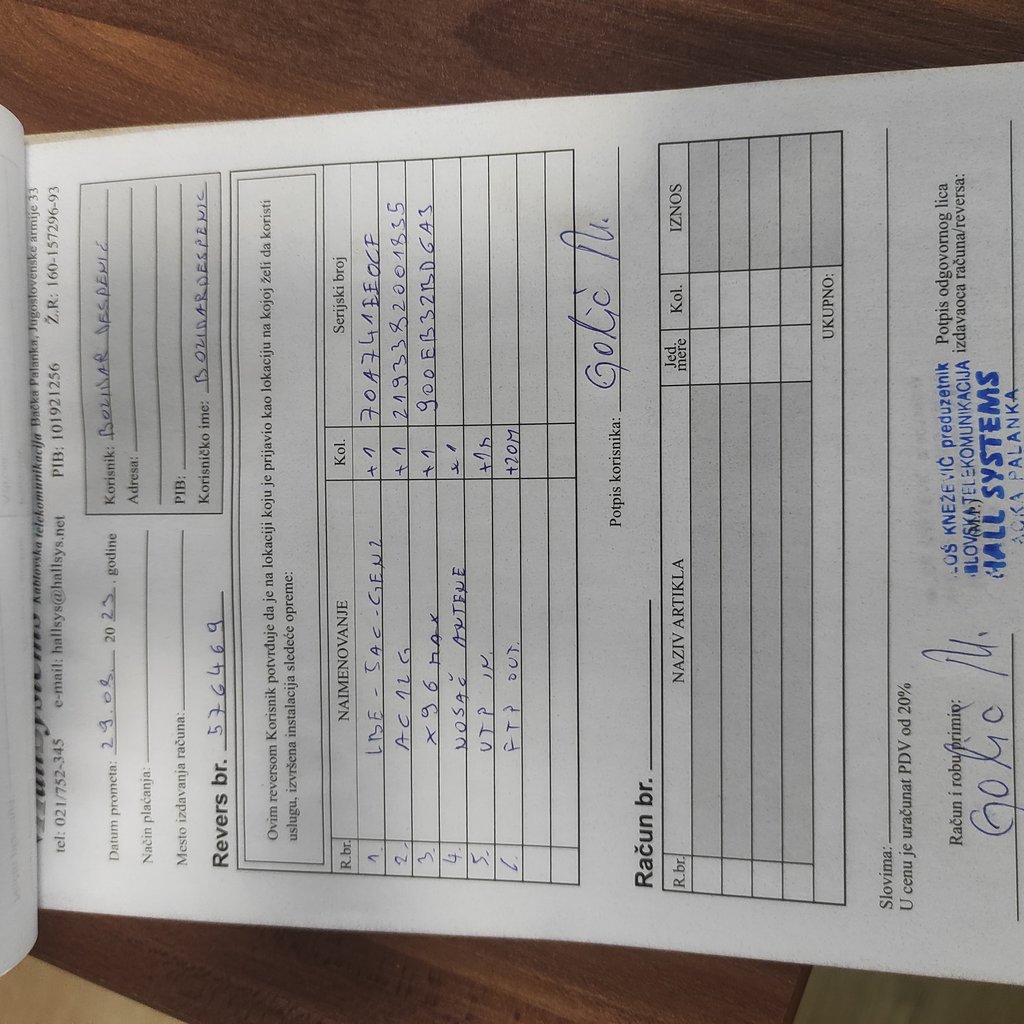 Kablovska telekomunikacija Bačka Palanka, Jugoslovenske armije 33
tel: 021/752-345 e-mail: hallsys@hallsys.net PIB: 101921256 Ž.R: 160-157296-93
Datum prometa: 29.03. 2023, godine
Način plaćanja:
Mesto izdavanja računa:
Korisnik: BOŽIDAR DESPENIĆ
Adresa:
PIB:
Korisničko ime: BOZIDARDESPENIC
Revers br. 576469
Ovim reversom Korisnik potvrđuje da je na lokaciji koju je prijavio kao lokaciju na kojoj želi da koristi
uslugu, izvršena instalacija sledeće opreme:
R.br. NAIMENOVANJE Kol. Serijski broj
1. LBE-5AC-GEN2 +1 704741BEEOCF
2. AC12G +1 2193382001835
3. X96 MAX +1 900EB32BDGA3
4. NOSAČ ANTENE x1
5. UTP IN. +1m
6. FTP OUT. +20M
Potpis korisnika: Golić M.
Račun br.
R.br. NAZIV ARTIKLA Jed. mere Kol. IZNOS
UKUPNO:
Slovima:
U cenu je uračunat PDV od 20%
Račun i robu primio: Golić M.
(M.P.)
Potpis odgovornog lica
izdavaoca računa/reversa:
LOŠ KNEŽEVIĆ preduzetnik
BLOVSKA TELEKOMUNIKACIJA
HALL SYSTEMS
AČKA PALANKA